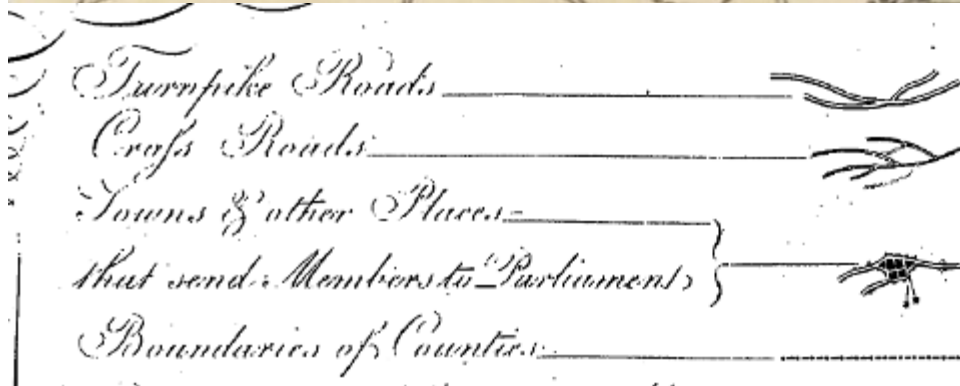 Turnpike Roads
Croſs Roads
Towns & other Places
that send Members to Parliament
Boundaries of Counties